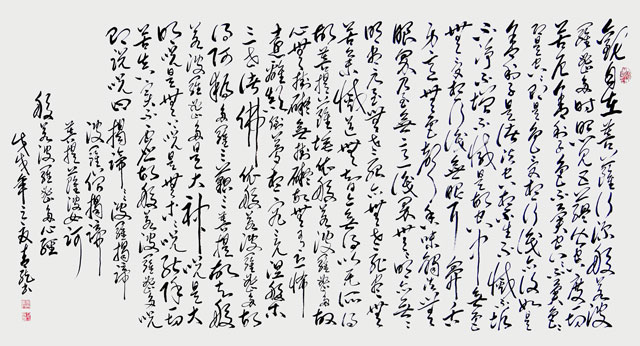 觀自在菩薩行深般若波
羅蜜多時照見五蘊皆空度一切
苦厄舍利子色不異空空不異色色
即是空空即是色受想行識亦復如是
舍利子是諸法空相不生不滅不垢
不淨不增不減是故空中無色
無受想行識無眼耳鼻舌
身意無色聲香味觸法無
眼界乃至無意識界無無明亦無無
明盡乃至無老死亦無老死盡無
苦集滅道無智亦無得以無所得
故菩提薩埵依般若波羅蜜多故
心無罣礙無罣礙故無有恐怖
遠離顛倒夢想究竟涅槃
三世諸佛依般若波羅蜜多故
得阿耨多羅三藐三菩提故知般
若波羅蜜多是大神咒是大
明咒是無上咒是無等等咒能除一切
苦真實不虛故說般若波羅蜜多咒
即說咒曰揭諦揭諦波羅揭諦
波羅僧揭諦
菩提薩婆訶
般若波羅蜜多心經
戊戌年之秋